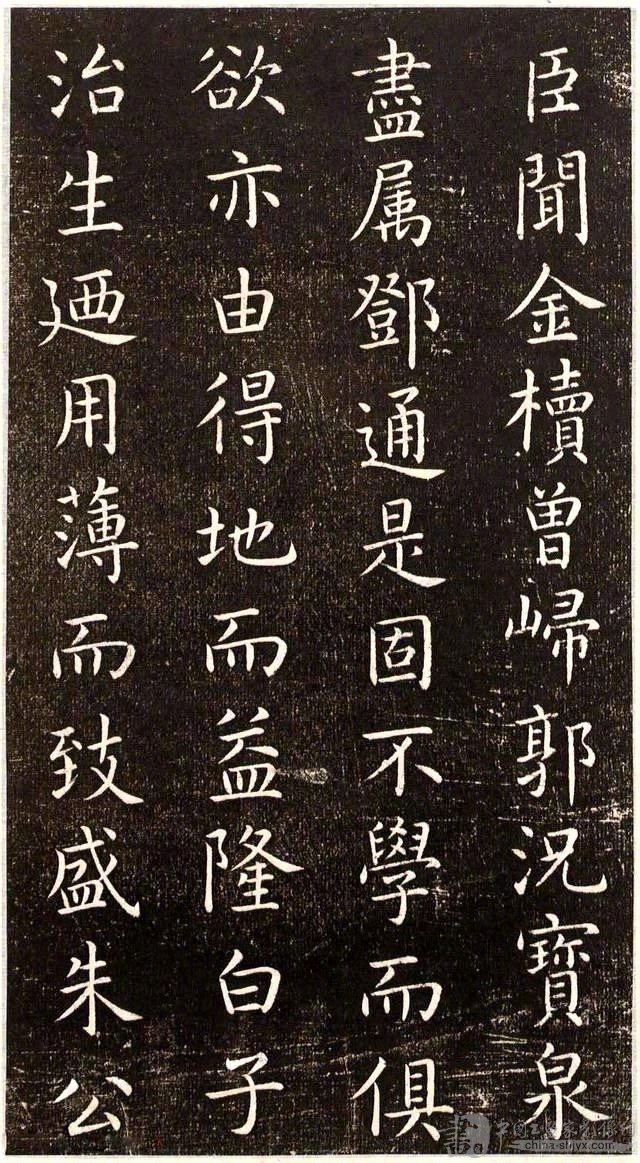 臣聞金櫝曾歸郭況寶泉
盡属鄧通是固不學而俱
欲亦由得地而益隆白子
治生廼用薄而致盛朱公
china-shjyx.com